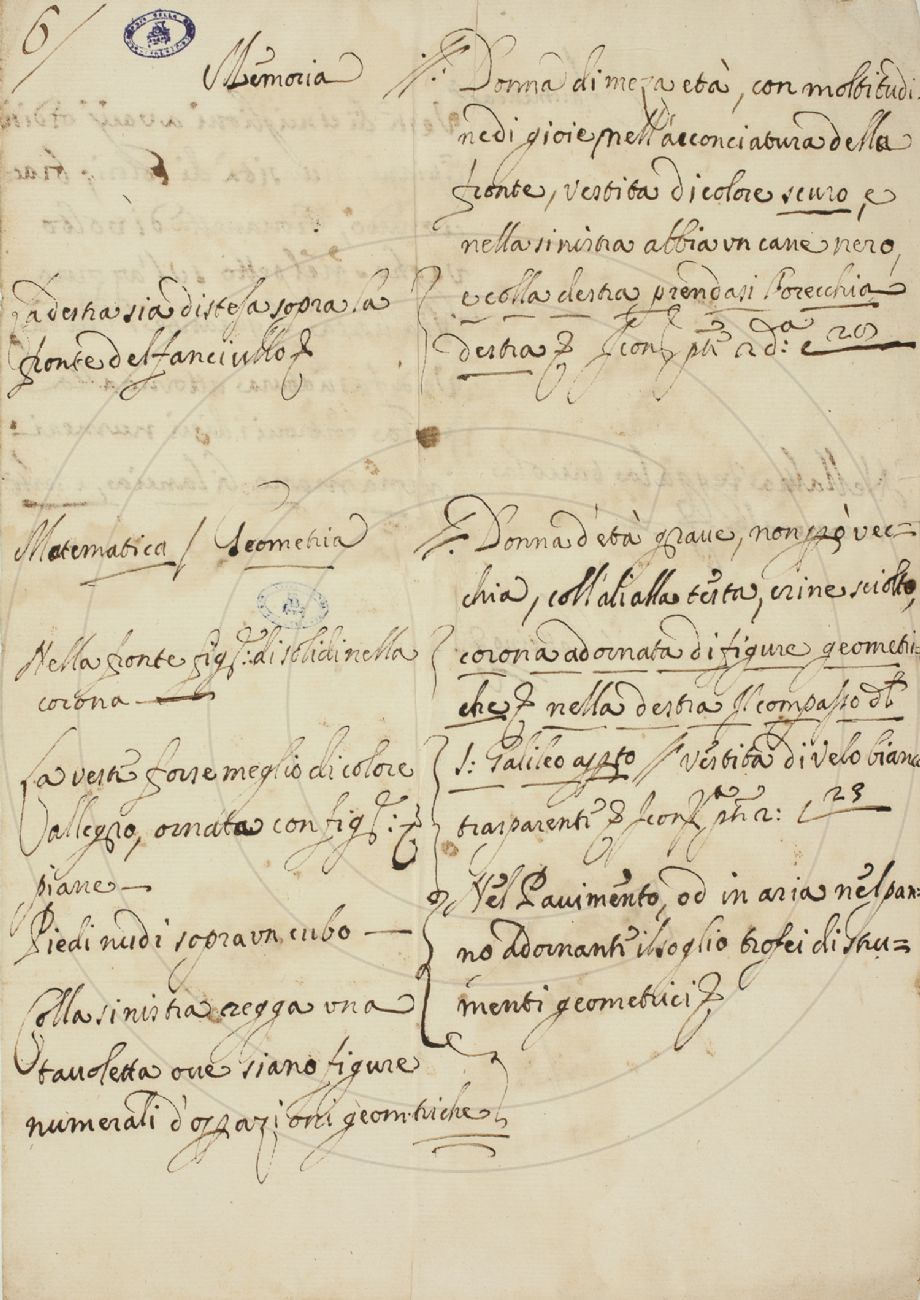 6/
Memoria
Donna di meza età, con moltitudi
ne di gioie nell'acconciatura della
fronte, vestita di colore scuro, e
nella sinistra abbia un cane nero,
e colla destra prendasi l'orecchia
destra
La destra sia distesa sopra la
fronte del fanciullo
Matematica / Geometria
Donna d'età grave, non però vec=
chia, coll'ali alla testa, crine sciolto,
corona adornata di figure geometri=
che nella destra il compasso
s: Galileo vestita di velo bianco
trasparente
Nel Pavimento, od in aria nel pan=
no adornante il soglio trofei di stru=
menti geometrici
Nella fronte fig: di solidi nella
corona
La veste forse meglio di colore
allegro, ornata con fig:
piane
Piedi nudi sopra un cubo
Colla sinistra regga una
tavoletta ove siano figure
numerali d'opazioni geometriche